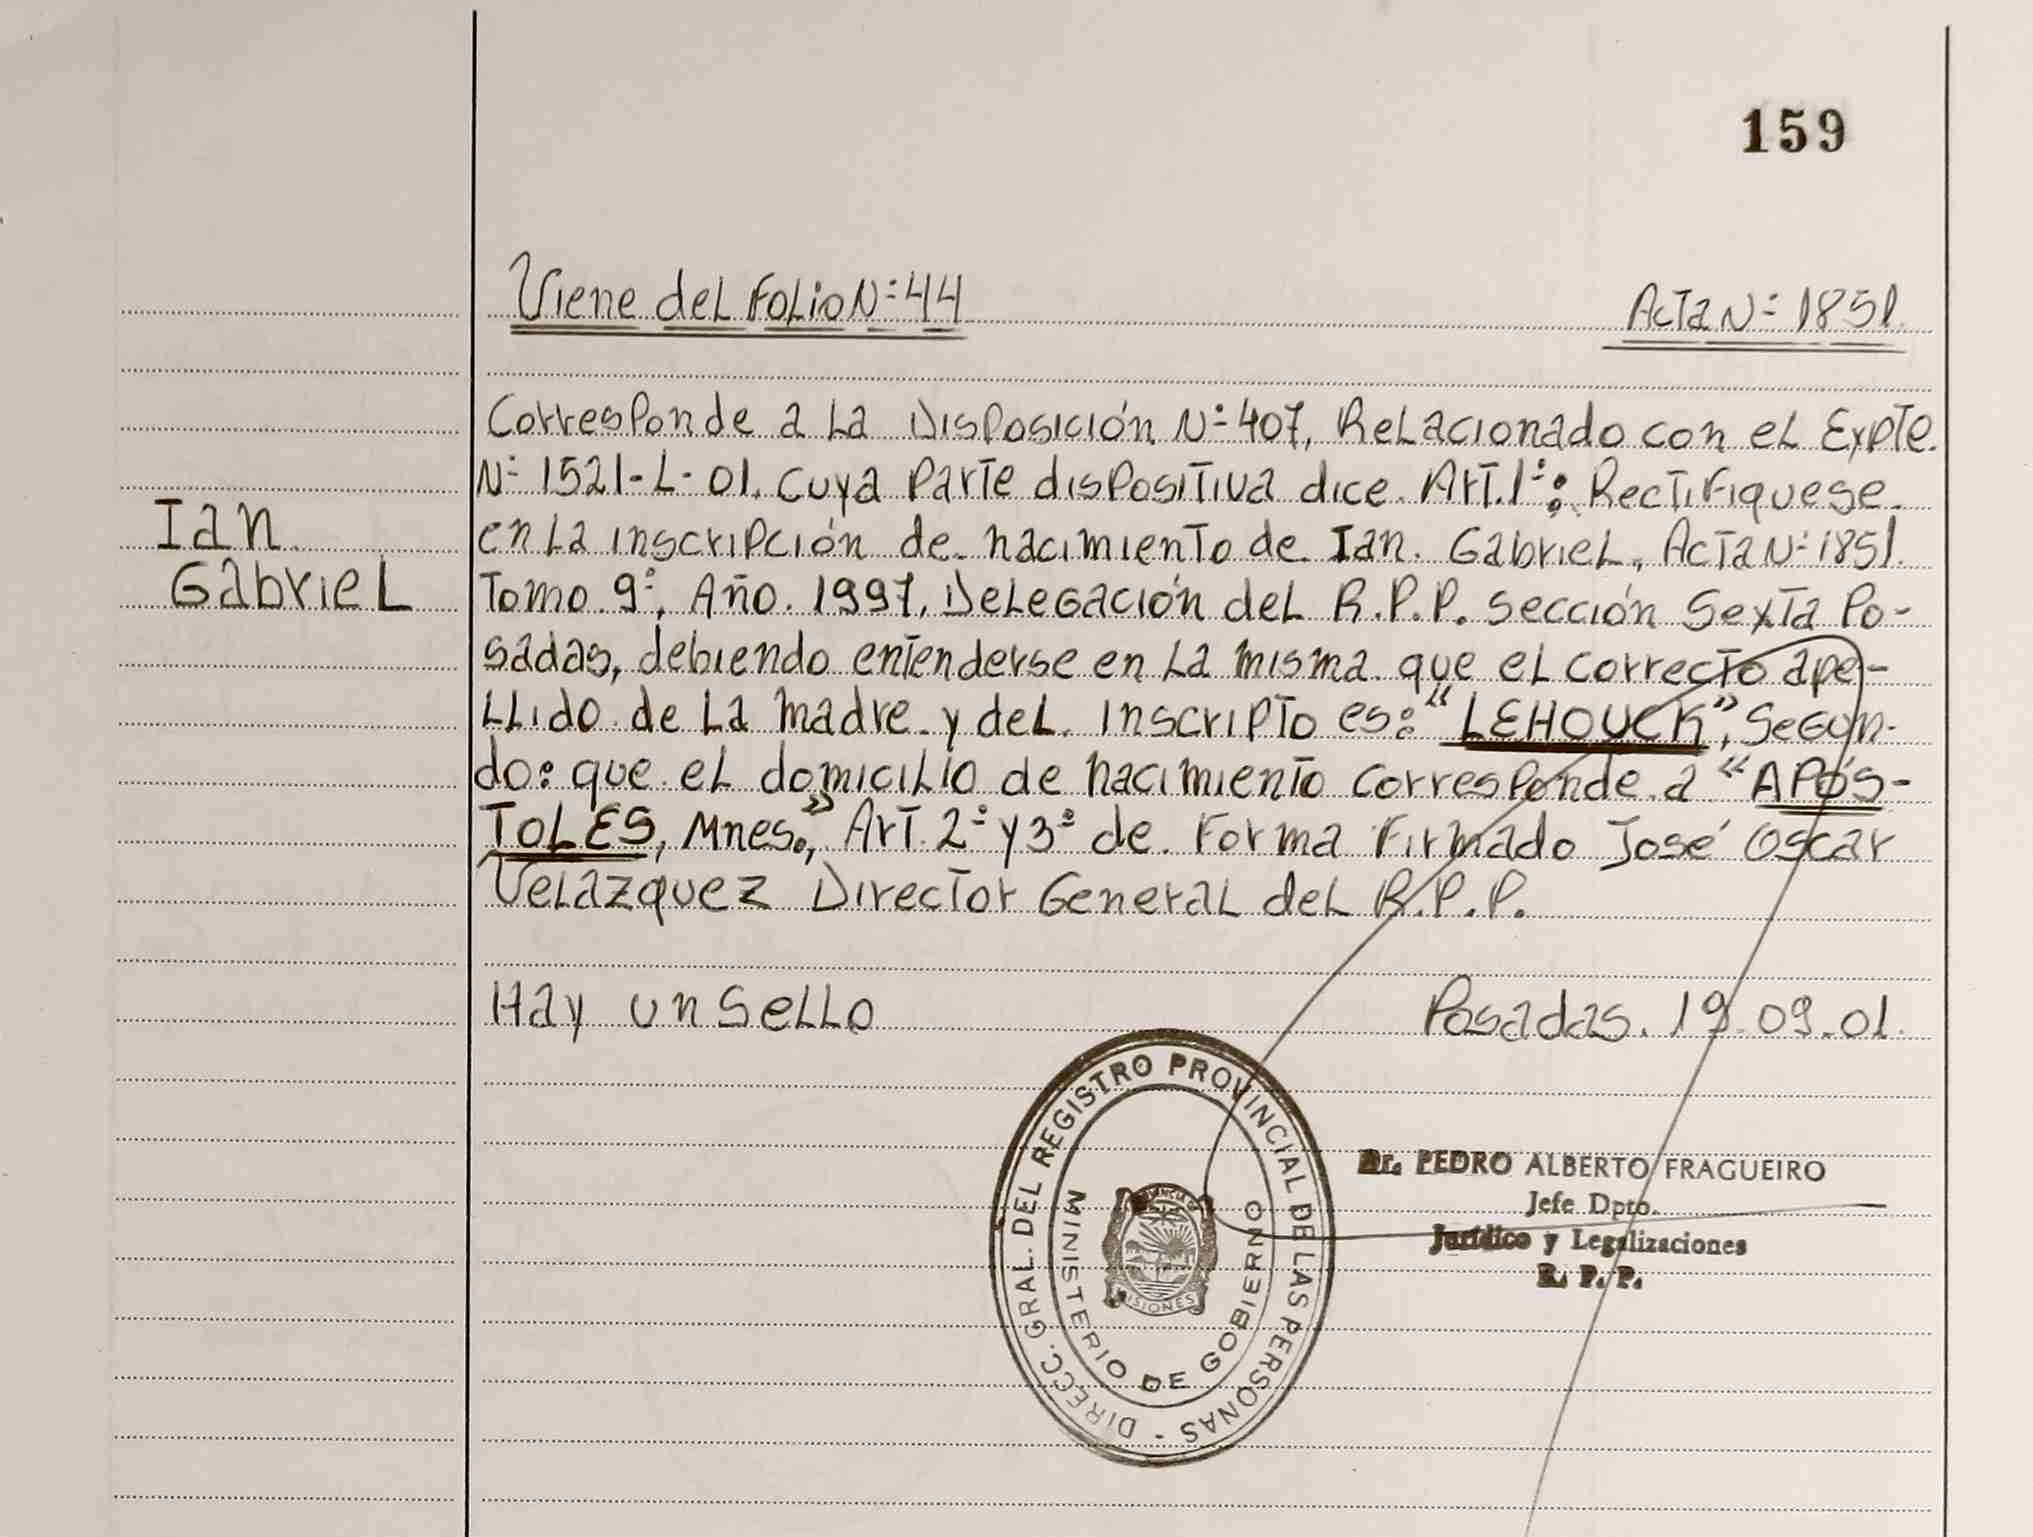 159
Viene del Folio N: 44
Acta N: 1851.
Corresponde a la Disposición N: 407, Relacionado con el Expte.
N: 1521-L-01. Cuya Parte dispositiva dice. Art. 1:: Rectifiquese
en la inscripción de nacimiento de Ian. Gabriel, Acta N: 1851.
Ian
Gabriel
Tomo 9:, Año. 1997, Delegación del R.P.P. Sección Sexta Po-
sadas, debiendo entenderse en la misma que el correcto ape-
llido de la madre y del inscripto es: "LEHOUCK", Segun-
do: que el domicilio de nacimiento corresponde a "APÓS-
TOLES, Mnes.", Art. 2: y 3: de Forma Firmado José Oscar
Velazquez Director General del R.P.P.
Hay un Sello
Posadas. 19.09.01.
DIRECC. GRAL. DEL REGISTRO PROVINCIAL DE LAS PERSONAS -
MINISTERIO DE GOBIERNO
PROVINCIA DE
MISIONES
Dr. PEDRO ALBERTO FRAGUEIRO
Jefe Dpto.
Jurídico y Legalizaciones
R. P. P.